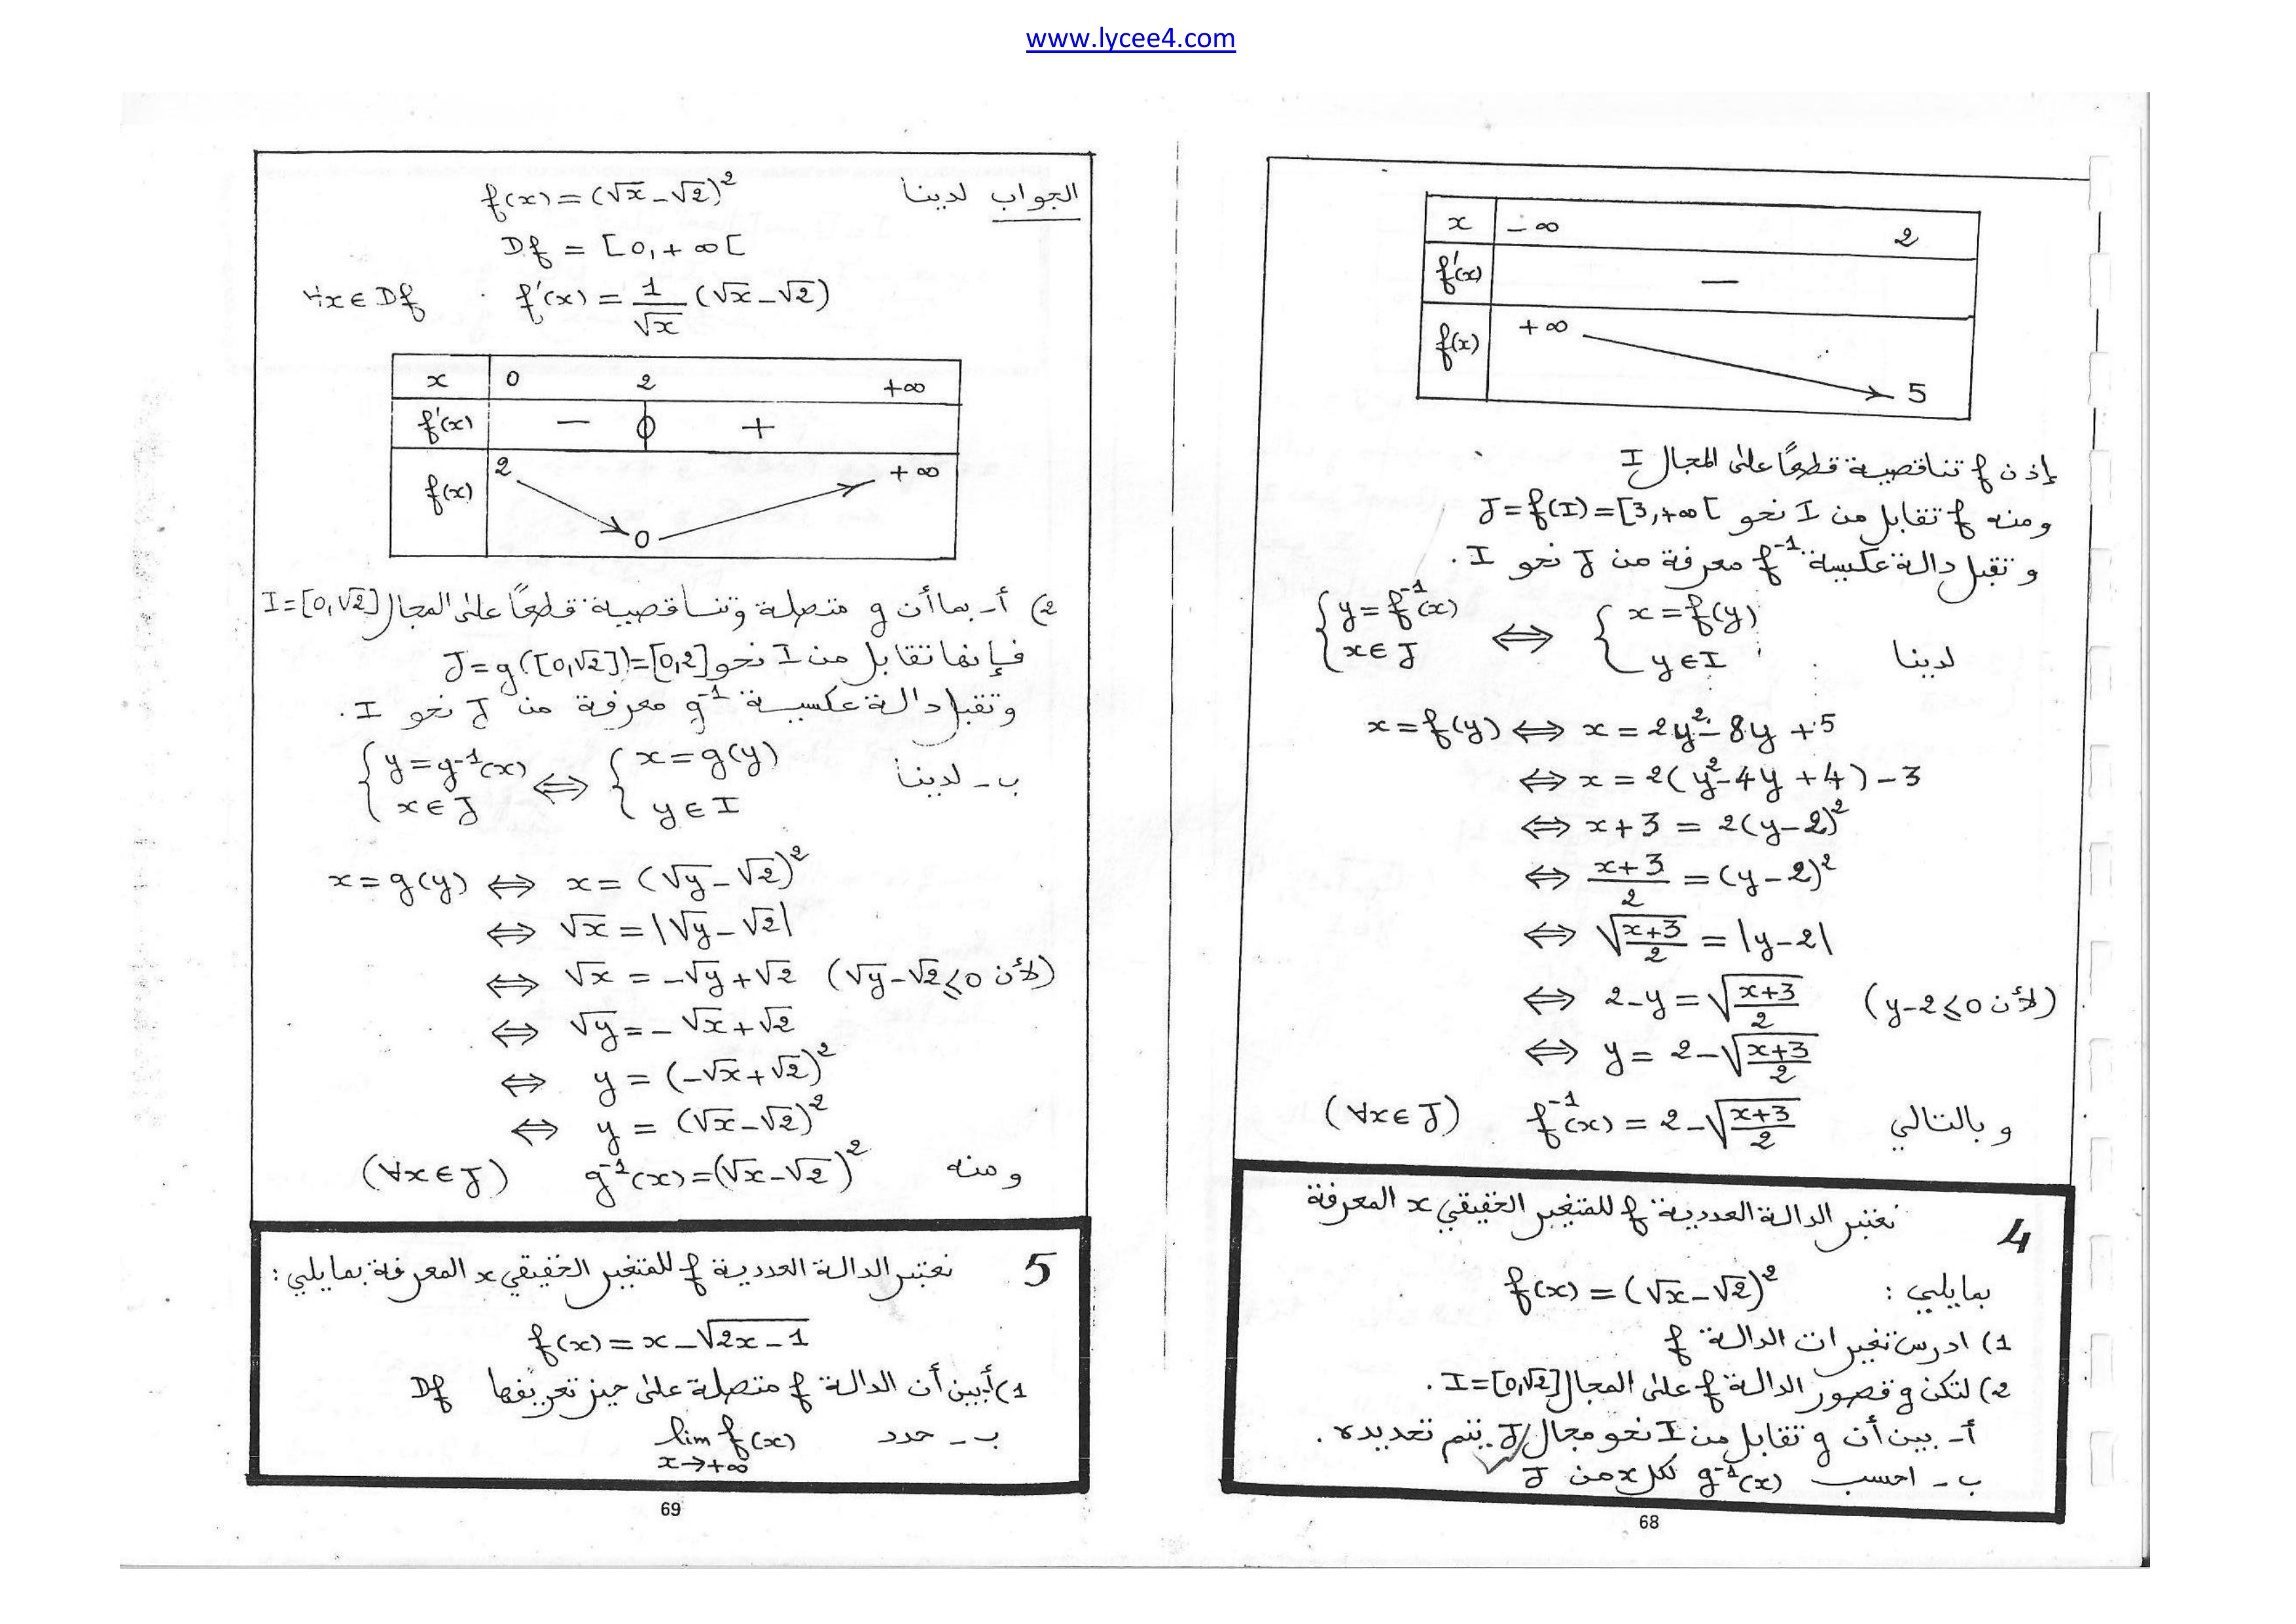 www.lycee4.com
x | -∞ 2
f'(x) | −
f(x) | +∞ 5
إذن f تناقصية قطعًا على المجال I
ومنه f تقابل من I نحو J=f(I)=[3,+∞[
و تقبل دالة عكسية f⁻¹ معرفة من J نحو I .
لدينا { x=f(y) , y∈I ⟺ { y=f⁻¹(x) , x∈J
x=f(y) ⟺ x = 2y²-8y+5
⟺ x = 2(y²-4y+4)-3
⟺ x+3 = 2(y-2)²
⟺ (x+3)/2 = (y-2)²
⟺ √((x+3)/2) = |y-2|
⟺ 2-y = √((x+3)/2) (لأن y-2≤0)
⟺ y = 2-√((x+3)/2)
و بالتالي f⁻¹(x) = 2-√((x+3)/2) (∀x∈J)
4 نعتبر الدالة العددية f للمتغير الحقيقي x المعرفة
بمايلي : f(x) = (√x-√2)²
1) ادرس تغيرات الدالة f
2) لتكن g قصور الدالة f على المجال I=[0,√2] .
أ- بين أن g تقابل من I نحو مجال J يتم تحديده .
ب- احسب g⁻¹(x) لكل x من J
68
الجواب لدينا f(x) = (√x-√2)²
Df = [0,+∞[
∀x∈Df f'(x) = 1/√x (√x-√2)
x | 0 2 +∞
f'(x) | − 0 +
f(x) | 2 0 +∞
2) أ- بما أن g متصلة وتناقصية قطعًا على المجال I=[0,√2]
فإنها تقابل من I نحو J=g([0,√2])=[0,2]
وتقبل دالة عكسية g⁻¹ معرفة من J نحو I .
ب- لدينا { x=g(y) , y∈I ⟺ { y=g⁻¹(x) , x∈J
x=g(y) ⟺ x = (√y-√2)²
⟺ √x = |√y-√2|
⟺ √x = -√y+√2 (لأن √y-√2≤0)
⟺ √y = -√x+√2
⟺ y = (-√x+√2)²
⟺ y = (√x-√2)²
ومنه g⁻¹(x)=(√x-√2)² (∀x∈J)
5 نعتبر الدالة العددية f للمتغير الحقيقي x المعرفة بمايلي :
f(x) = x-√(2x-1)
1) أ- بين أن الدالة f متصلة على حيز تعريفها Df
ب- حدد lim f(x) x→+∞
69